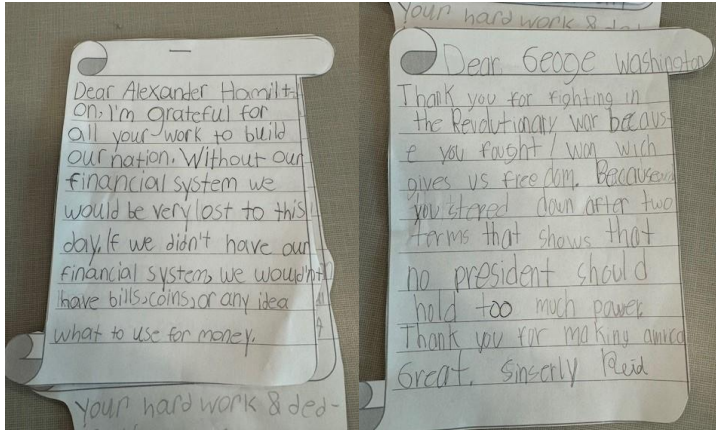 Dear Alexander Hamilt-
on, I'm grateful for
all your work to build
our nation. Without our
financial system we
would be very lost to this
day. If we didn't have our
financial system, we wouldn't
have bills, coins, or any idea
what to use for money.
your hard work & ded-
your hard work &
Dear Geoge Washington
Thank you for fighting in
the Revolutionary war becaus
e you fought / won wich
gives us freedom. Because
you steped down after two
terms that shows that
no president should
hold too much power.
Thank you for making amrica
Great. Sinserly Reid